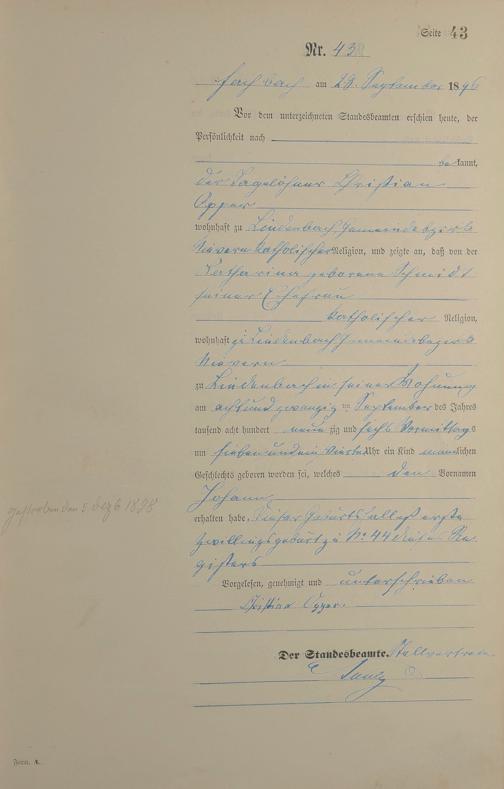 Seite 43
Nr. 43
Fachbach am 28. September 1896
Vor dem unterzeichneten Standesbeamten erschien heute, der
Persönlichkeit nach
bekannt,
der Tagelöhner Christian
Opper
wohnhaft zu Lindenbach Gemeindebezirk
Nievern katholischer Religion, und zeigte an, daß von der
Katharina geborene Schmidt
seiner Ehefrau
katholischer Religion,
wohnhaft zu Lindenbach Gemeindebezirk
Nievern
zu Lindenbach in seiner Wohnung
am achtundzwanzig ten September des Jahres
tausend acht hundert neunzig und sechs Vormittags
um sieben und ein Viertel Uhr ein Kind männlichen
Geschlechts geboren worden sei, welches den Vornamen
Johann
erhalten habe. Dieser Geburtsfall ist erste
Zwillingsgeburt zu No 44 dieses Re
gisters
Vorgelesen, genehmigt und unterschrieben
Christian Opper.
Der Standesbeamte. Stellvertreter
gestorben den 5 Dezb 1898
Form. A.